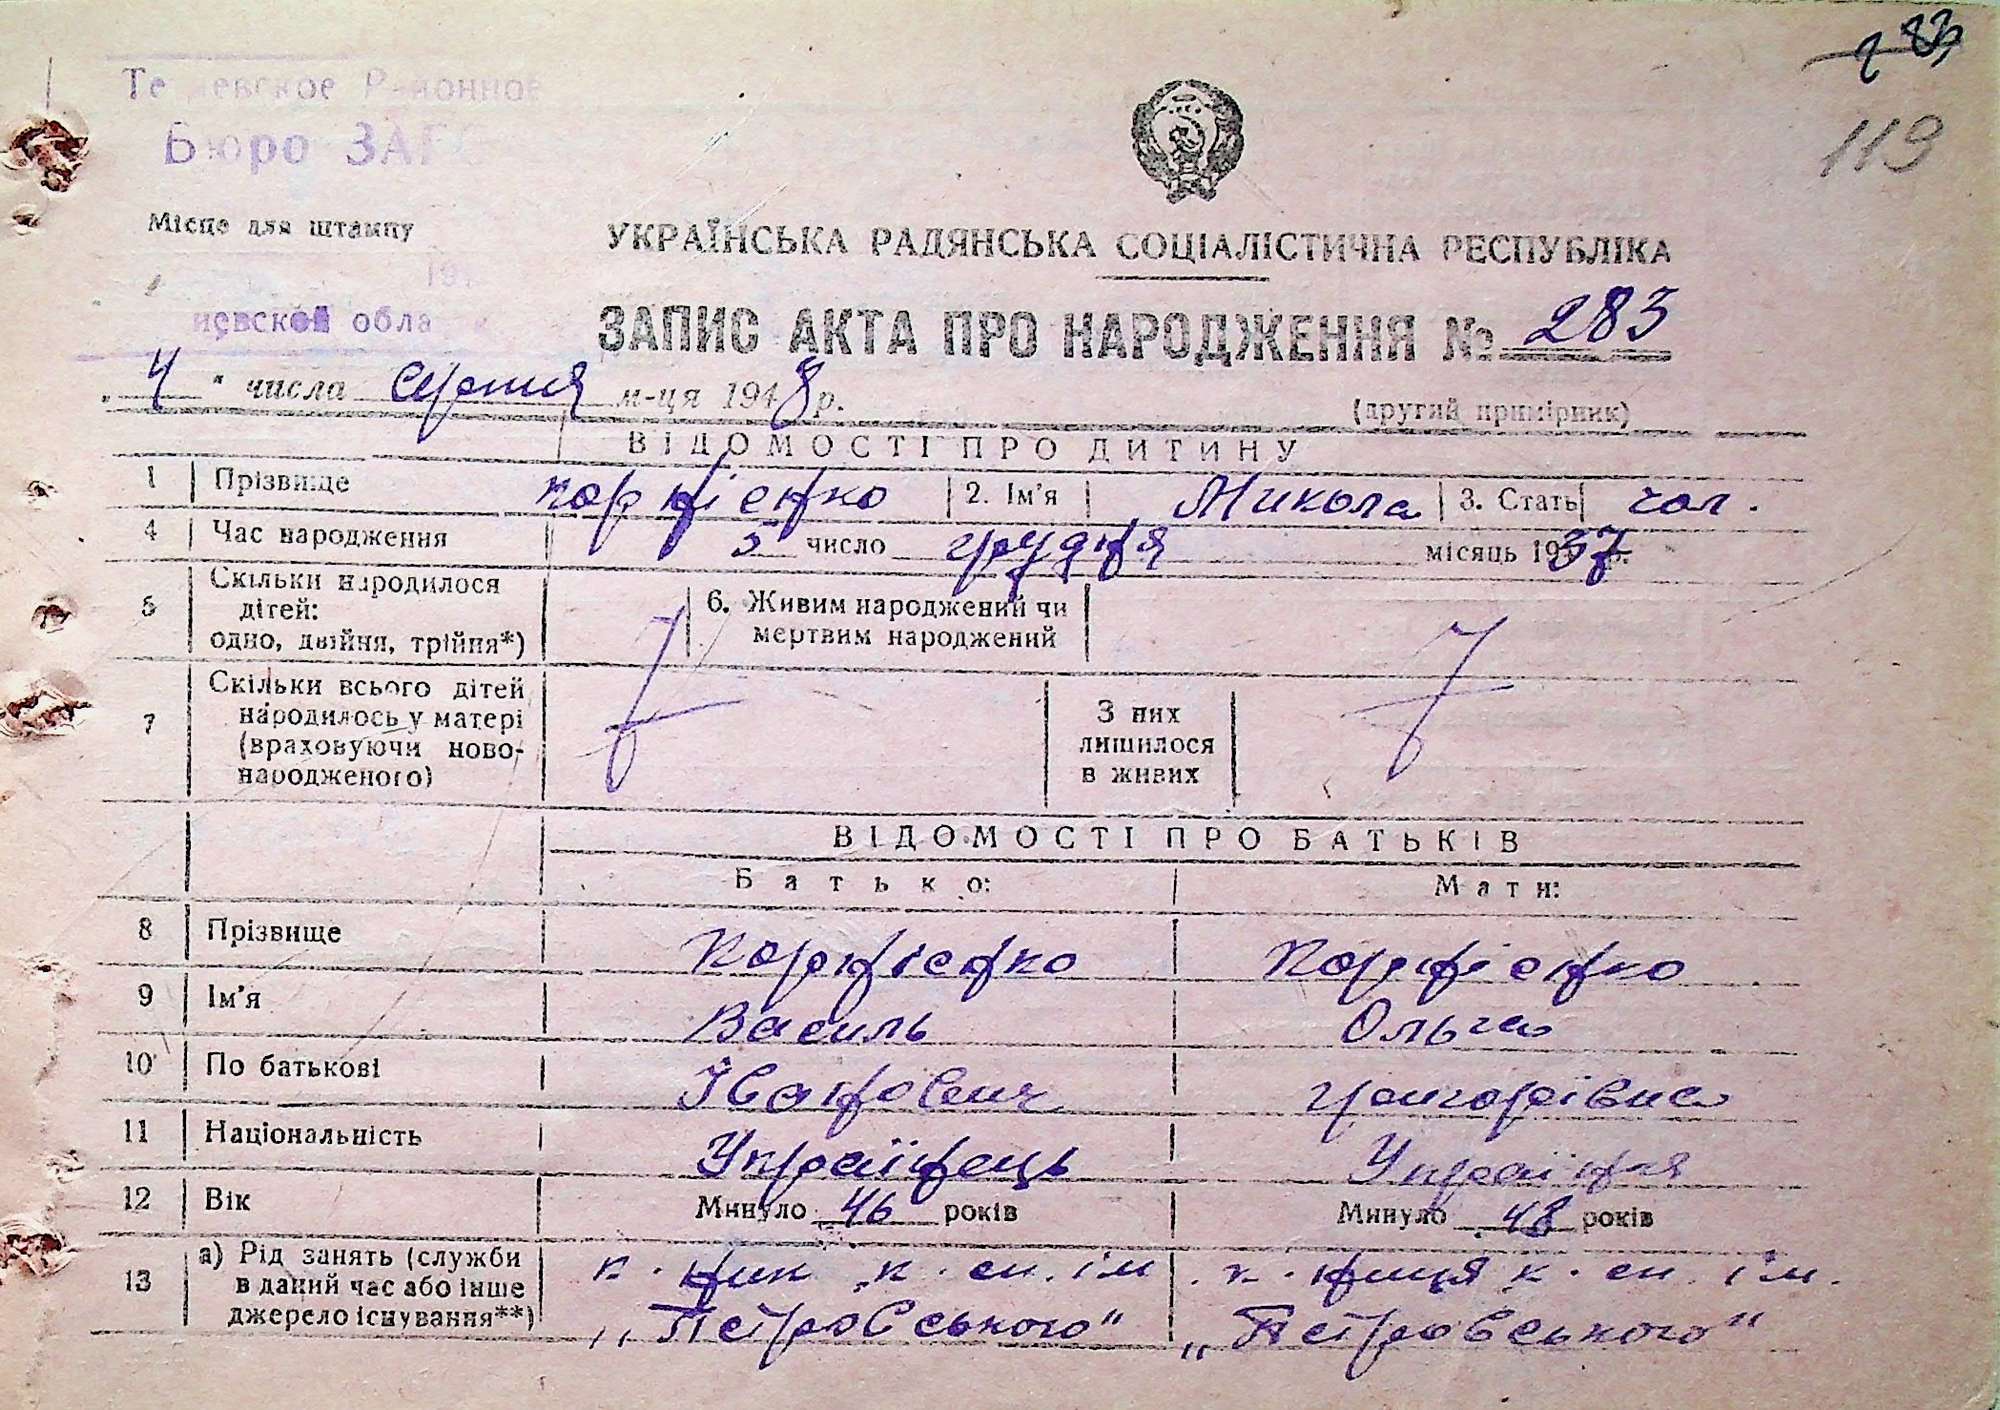 283
119
Районное
Бюро ЗАГС
Місце для штампу
УКРАЇНСЬКА РАДЯНСЬКА СОЦІАЛІСТИЧНА РЕСПУБЛІКА
ЗАПИС АКТА ПРО НАРОДЖЕННЯ № 283
„4" числа серпня м-ця 1948 р.
(другий примірник)
ВІДОМОСТІ ПРО ДИТИНУ
1 Прізвище Корнієнко 2. Ім'я Микола 3. Стать чол.
4 Час народження 5 число грудня місяць 1937 р.
5 Скільки народилося дітей: одно, двійня, трійня*)
6. Живим народжений чи мертвим народжений
7 Скільки всього дітей народилось у матері (враховуючи ново-народженого)
З них лишилося в живих
ВІДОМОСТІ ПРО БАТЬКІВ
Батько: Мати:
8 Прізвище Корнієнко Корнієнко
9 Ім'я Василь Ольга
10 По батькові Іванович Григорівна
11 Національність Українець Українка
12 Вік Минуло 46 років Минуло 48 років
13 а) Рід занять (служби к-ник к-сп. ім. к-ниця к-сп. ім.
в даний час або інше
джерело існування**) „Петровського" „Петровського"